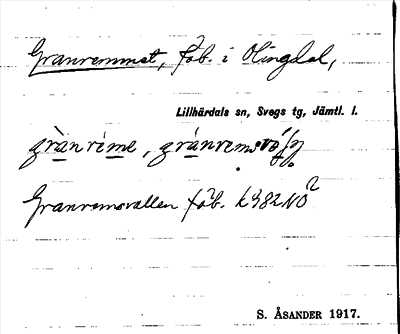 Granremmet, fäb. i Olingdal,
Lillhärdals sn, Svegs tg, Jämtl. l.
grànrime, gránremsvóln
Granremsvallen fäb. k382NO2
S. ÅSANDER 1917.